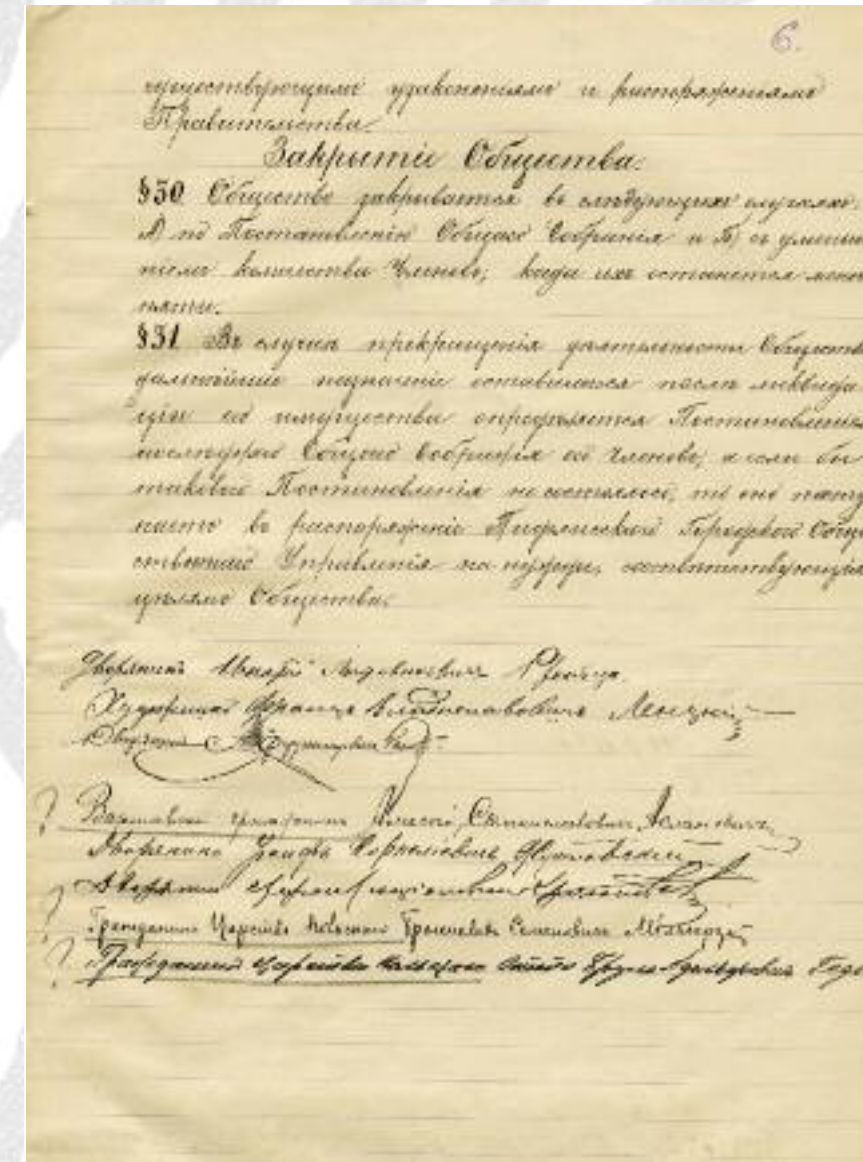 6.
существующими узаконеніями и распоряженіями
Правительства.
Закрытіе Общества.
§30 Общество закрывается въ слѣдующихъ случаяхъ:
А) по Постановленію Общаго Собранія и Б) съ уменьше
ніемъ количества Членовъ, когда ихъ останется мен
пяти.
§31 Въ случаѣ прекращенія дѣятельности Общества
дальнѣйшее назначеніе оставшагося послѣ ликвида
ціи его имущества опредѣляется Постановленіем
послѣдняго Общаго Собранія его Членовъ, а если бы
таковаго Постановленія не состоялось, то оно посту
паетъ въ распоряженіе Тифлисскаго Городского Обще
ственнаго Управленія на нужды, соотвѣтствующія
цѣлямъ Общества.
Дворянинъ
Художникъ Францъ
Дворянинъ
? Варшавскій гражданинъ
Дворянинъ
Дворянинъ
? Гражданинъ Царства Польскаго Семеновичъ
? Гражданинъ Царства Польскаго